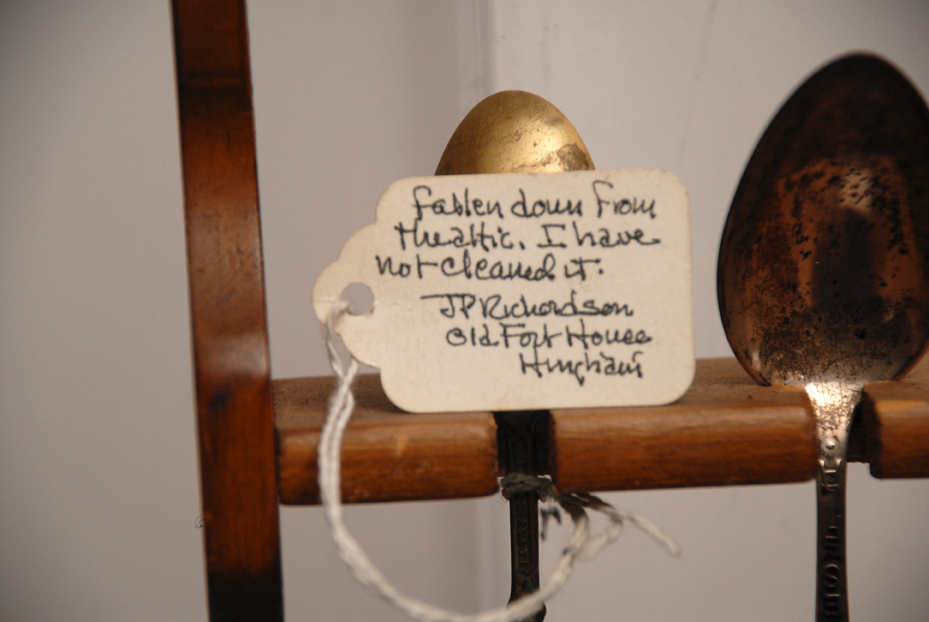 fallen down from
the attic. I have
not cleaned it.
JP Richardson
Old Fort House
Hingham